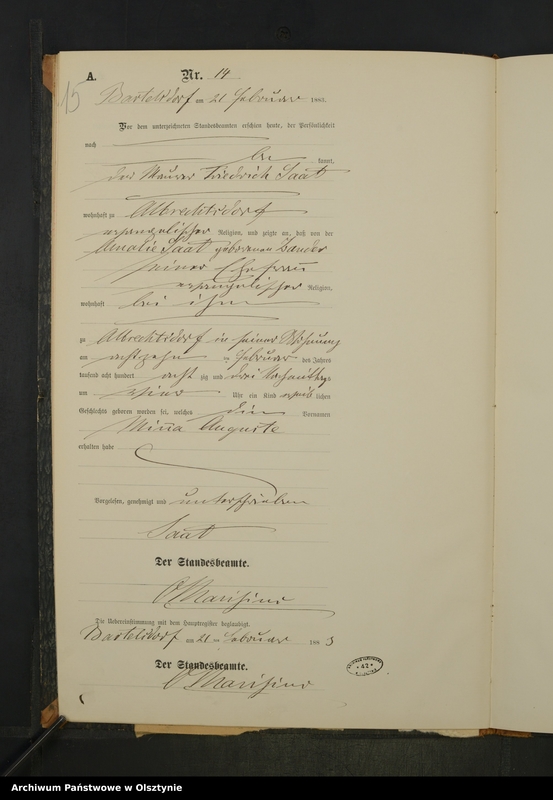 A.
Nr. 14
15
Bartelsdorf am 21 Februar 1883.
Vor dem unterzeichneten Standesbeamten erschien heute, der Persönlichkeit
nach
be kannt,
der Maurer Friedrich Saat
wohnhaft zu Albrechtsdorf
evangelischer Religion, und zeigte an, daß von der
Amalie Saat geborenen Zander
seiner Ehefrau
evangelischer Religion,
wohnhaft bei ihm
zu Albrechtsdorf in seiner Wohnung
am achtzehn ten Februar des Jahres
tausend acht hundert acht zig und drei Nachmittags
um Uhr ein Kind weib lichen
Geschlechts geboren worden sei, welches die Vornamen
Minna Auguste
erhalten habe
Vorgelesen, genehmigt und unterschrieben
Saat
Der Standesbeamte.
Die Uebereinstimmung mit dem Hauptregister beglaubigt.
Bartelsdorf am 21 ten Februar 188 3
Der Standesbeamte.
* 42 *
Archiwum Państwowe w Olsztynie